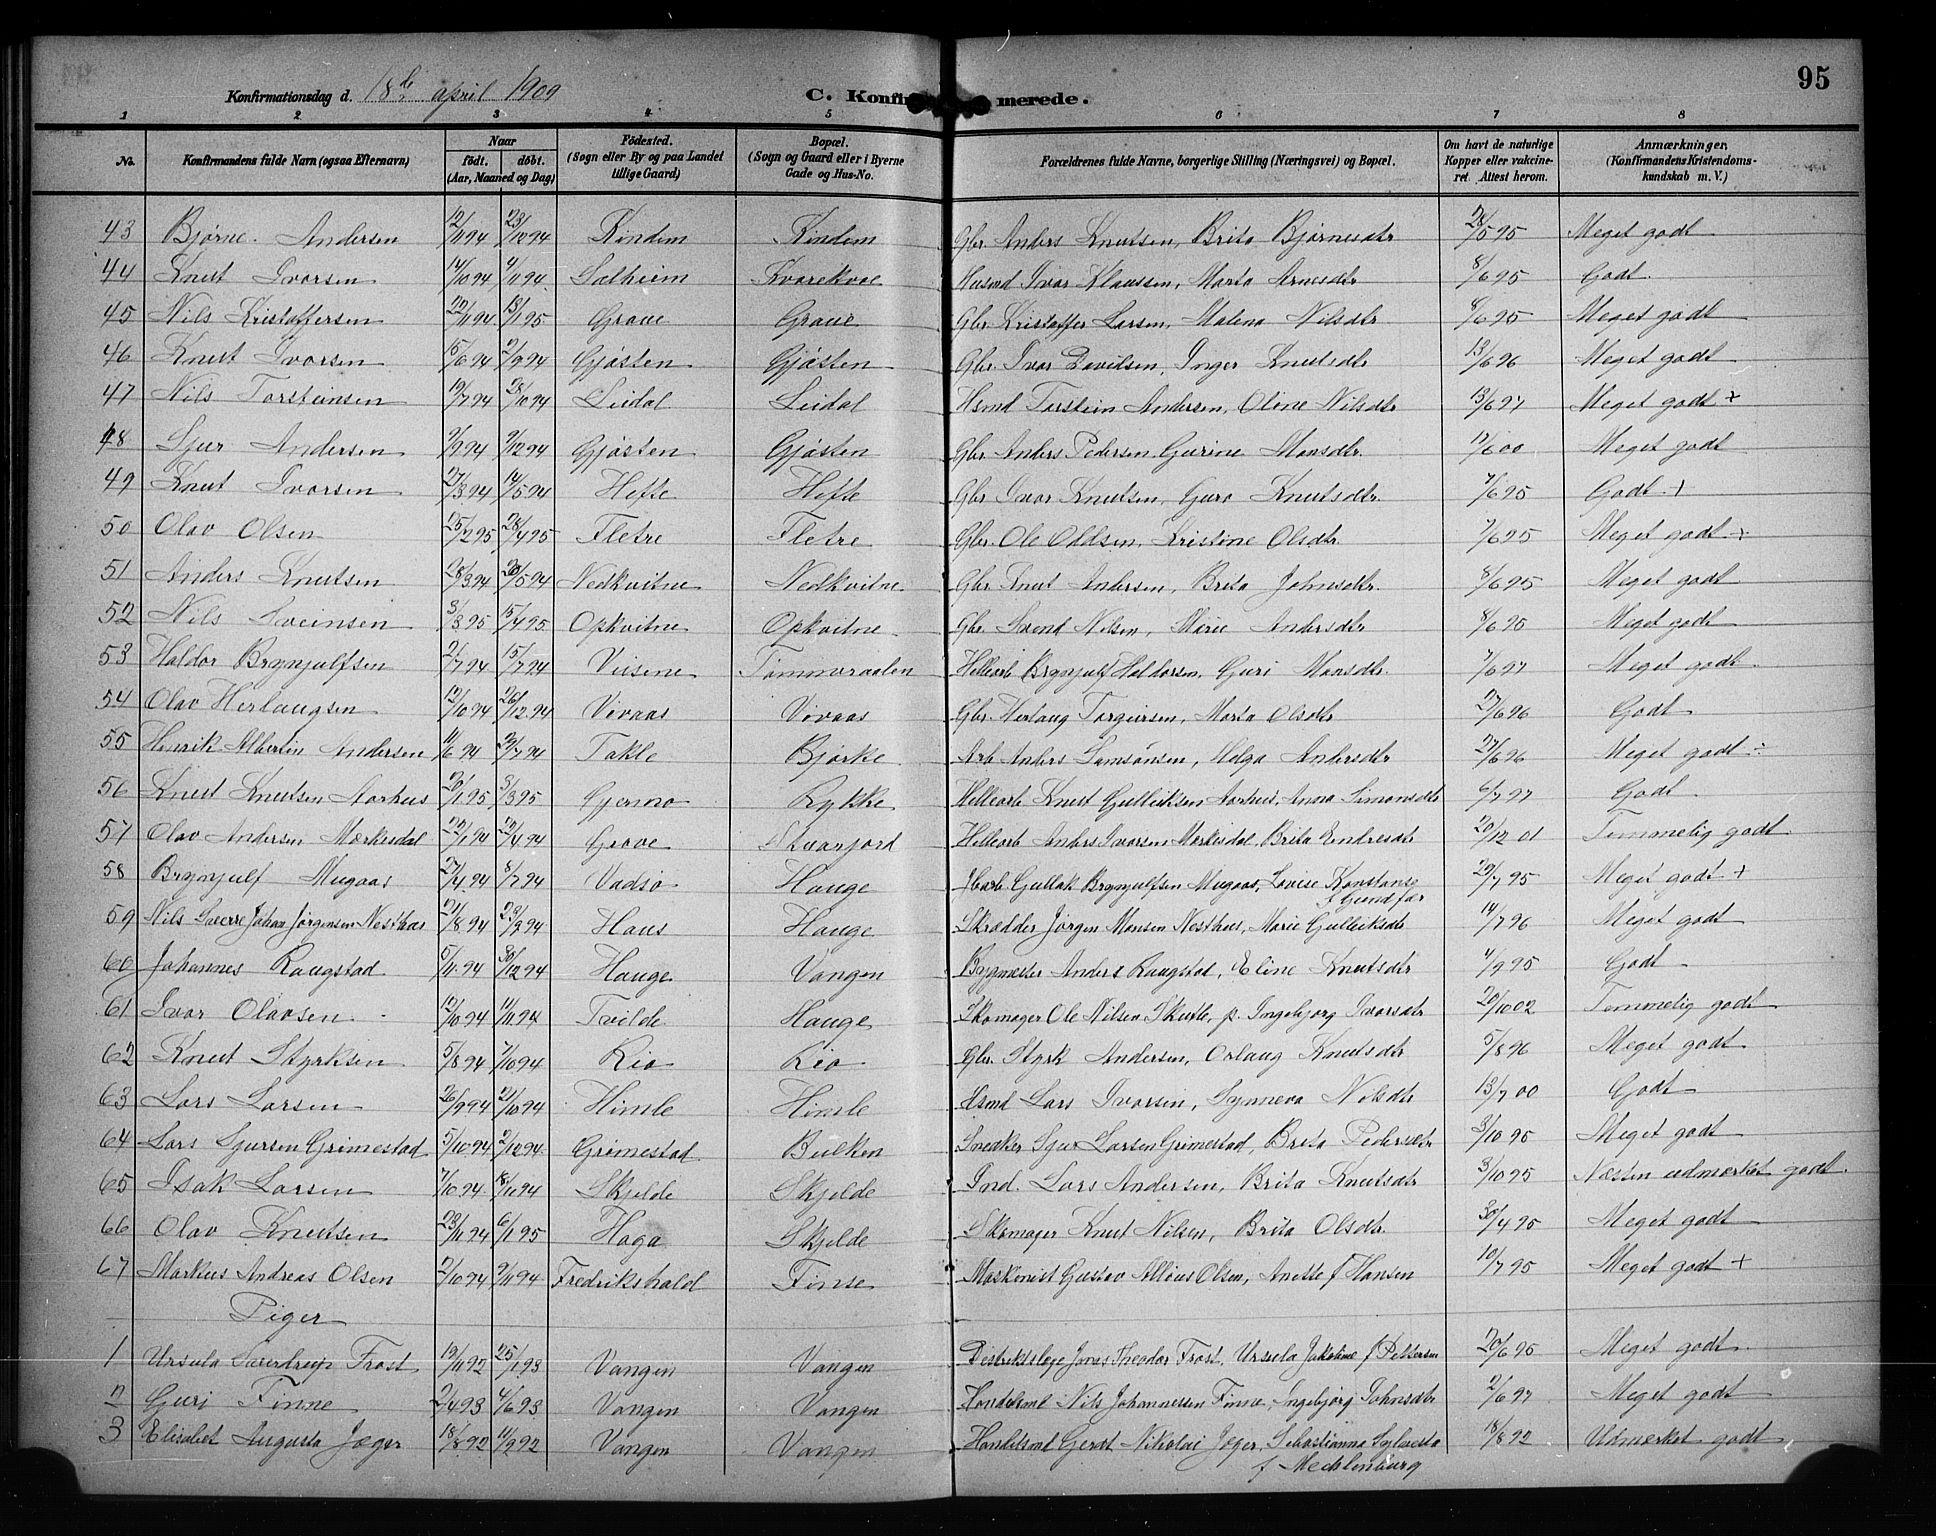 95
Konfirmationsdag d. 18de april 1909 C. Konfirmerede.
1 2 3 4 5 6 7 8
No. Konfirmandens fulde Navn (ogsaa Efternavn) Naar født. døbt. (Aar, Maaned og Dag) Fødested. (Sogn eller By og paa Landet tillige Gaard) Bopæl. (Sogn og Gaard eller i Byerne Gade og Hus-No. Forældrenes fulde Navne, borgerlige Stilling (Næringsvei) og Bopæl. Om havt de naturlige Kopper eller vakcineret. Attest herom. Anmærkninger, (Konfirmandens Kristendomskundskab m. V.)
43 Bjørne Andersen 12/11 94 23/12 94 Rindem Rindem Gbr. Anders Knutsen, Brita Bjørnesdtr 28/5 95 Meget godt
44 Knut Ivarsen 14/10 94 4/11 94 Salheim Kvarekvae Husmd Ivar Klaussen, Marta Arnesdtr 8/6 95 Godt.
45 Nils Kristoffersen 22/11 94 13/1 95 Grove Grove Gbr. Kristoffer Larsen, Malena Nilsdtr 8/6 95 Meget godt
46 Knut Ivarsen 15/6 94 2/9 94 Gjøsten Gjøsten Gbr. Ivar Davidsen, Inger Knutsdtr 13/6 96 Meget godt
47 Nils Torsteinsen 19/7 94 28/10 94 Leidal Leidal Hsmd Torstein Andersen, Oline Nilsdtr 13/6 97 Meget godt +
48 Sjur Andersen 9/9 94 9/12 94 Gjøsten Gjøsten Gbr. Anders Pedersen, Gurine Monsdtr. 12/6 00 Meget godt
49 Knut Ivarsen 27/3 94 14/5 94 Hefte Hefte Gbr Ivar Knutsen, Guro Knutsdtr. 7/6 95 Godt. +
50 Olav Olsen 25/2 95 28/4 95 Fletre Fletre Gbr. Ole Oddsen, Kristine Olsdtr. 7/6 95 Meget godt ÷
51 Anders Knutsen 28/3 94 20/5 94 Nedkvitne Nedkvitne Gbr Knut Andersen, Brita Johnsdtr. 8/6 95 Meget godt
52 Nils Sveinsen 3/3 95 15/4 95 Opkvitne Opkvitne Gbr. Svend Nilsen, Marie Andersdtr 8/6 95 Meget godt
53 Haldor Brynjulfsen 2/7 94 15/7 94 Vinsene Tømmeraalen Hellearb Brynjulf Haldorsen, Guri Monsdtr. 7/6 97 Meget godt.
54 Olav Herlaugsen 12/10 94 26/12 94 Vivaas Vivaas Gbr. Herlaug Torgeirsen, Marta Olsdtr 27/6 96 Godt
55 Henrik Albertin Andersen 11/6 94 22/7 94 Takle Bjørke Arb Anders Samsonsen, Helga Andersdtr 27/6 96 Meget godt ÷
56 Knut Knutsen Aarhus 20/1 95 3/3 95 Gjermo Rykke Hellearb Knut Gulleiksen Aarhus, Anna Simonsdtr 6/7 97 Godt
57 Olav Andersen Mørkesdal 22/1 94 22/4 94 Grove Skvarjord Hellearb Anders Ivarsen Mørkesdal, Brita Endresdtr 20/12 01 Temmelig godt
58 Brynjulf Mugaas 27/4 94 8/7 94 Vadsø Hauge Jbarb Gullak Brynjulfsen Mugaas, Lovise Konstanse f Gundfær 29/7 95 Meget godt +
59 Nils Sverre Johan Jørgensen Nesthus 21/8 94 23/9 94 Haus Hauge Skrædder Jørgen Monsen Nesthus, Marie Gulleiksdtr 14/7 96 Meget godt
60 Johannes Raugstad 5/11 94 30/12 94 Hauge Vangen Bygmester Anders Raugstad, Eline Knutsdtr 4/9 95 Godt
61 Ivar Olavsen 12/10 94 11/11 94 Tvilde Hauge Skomager Ole Nilsen Skutle, p. Ingebjørg Ivarsdtr 20/10 02 Temmelig godt
62 Knut Styrksen 5/8 94 7/10 94 Rio Rio Gbr Styrk Andersen, Orlaug Knutsdtr 5/8 96 Meget godt
63 Lars Larsen 26/9 94 21/10 94 Himle Himle Hsmd Lars Ivarsen, Synneva Nilsdtr 13/7 00 Godt
64 Lars Sjursen Grimestad 5/10 94 2/12 94 Grimestad Bulken Snedker Sjur Larsen Grimestad, Brita Pedersdtr 3/10 95 Meget godt
65 Isak Larsen 7/10 94 8/11 94 Skjelde Skjelde Ind. Lars Andersen, Brita Knutsdtr 3/10 95 Næsten udmærket godt.
66 Olav Knutsen 23/11 94 6/1 95 Haga Skjelde Skomager Knut Nilsen, Brita Olsdtr. 30/4 95 Meget godt
67 Markus Andreas Olsen 2/10 94 9/11 94 Fredrikshald Finse Maskinist Gustav Olsen, Anette f Hansen 10/7 95 Meget godt +
Piger
1 Ursula Frost 19/11 92 25/1 93 Vangen Vangen Distriktslæge Jonas Theodor Frost, Ursula Jakobine f Pettersen 20/6 95 Meget godt.
2 Guri Finne 2/4 93 4/6 93 Vangen Vangen Handelsmd Nils Johannessen Finne, Ingebjørg Johnsdtr 2/6 97 Meget godt
3 Elisabet Augusta Jæger 18/8 92 11/9 92 Vangen Vangen Handelsmd Gerdt Nikolai Jæger, Sebastianna Sylvesta 18/8 92 Udmærket godt
f Mecklenburg